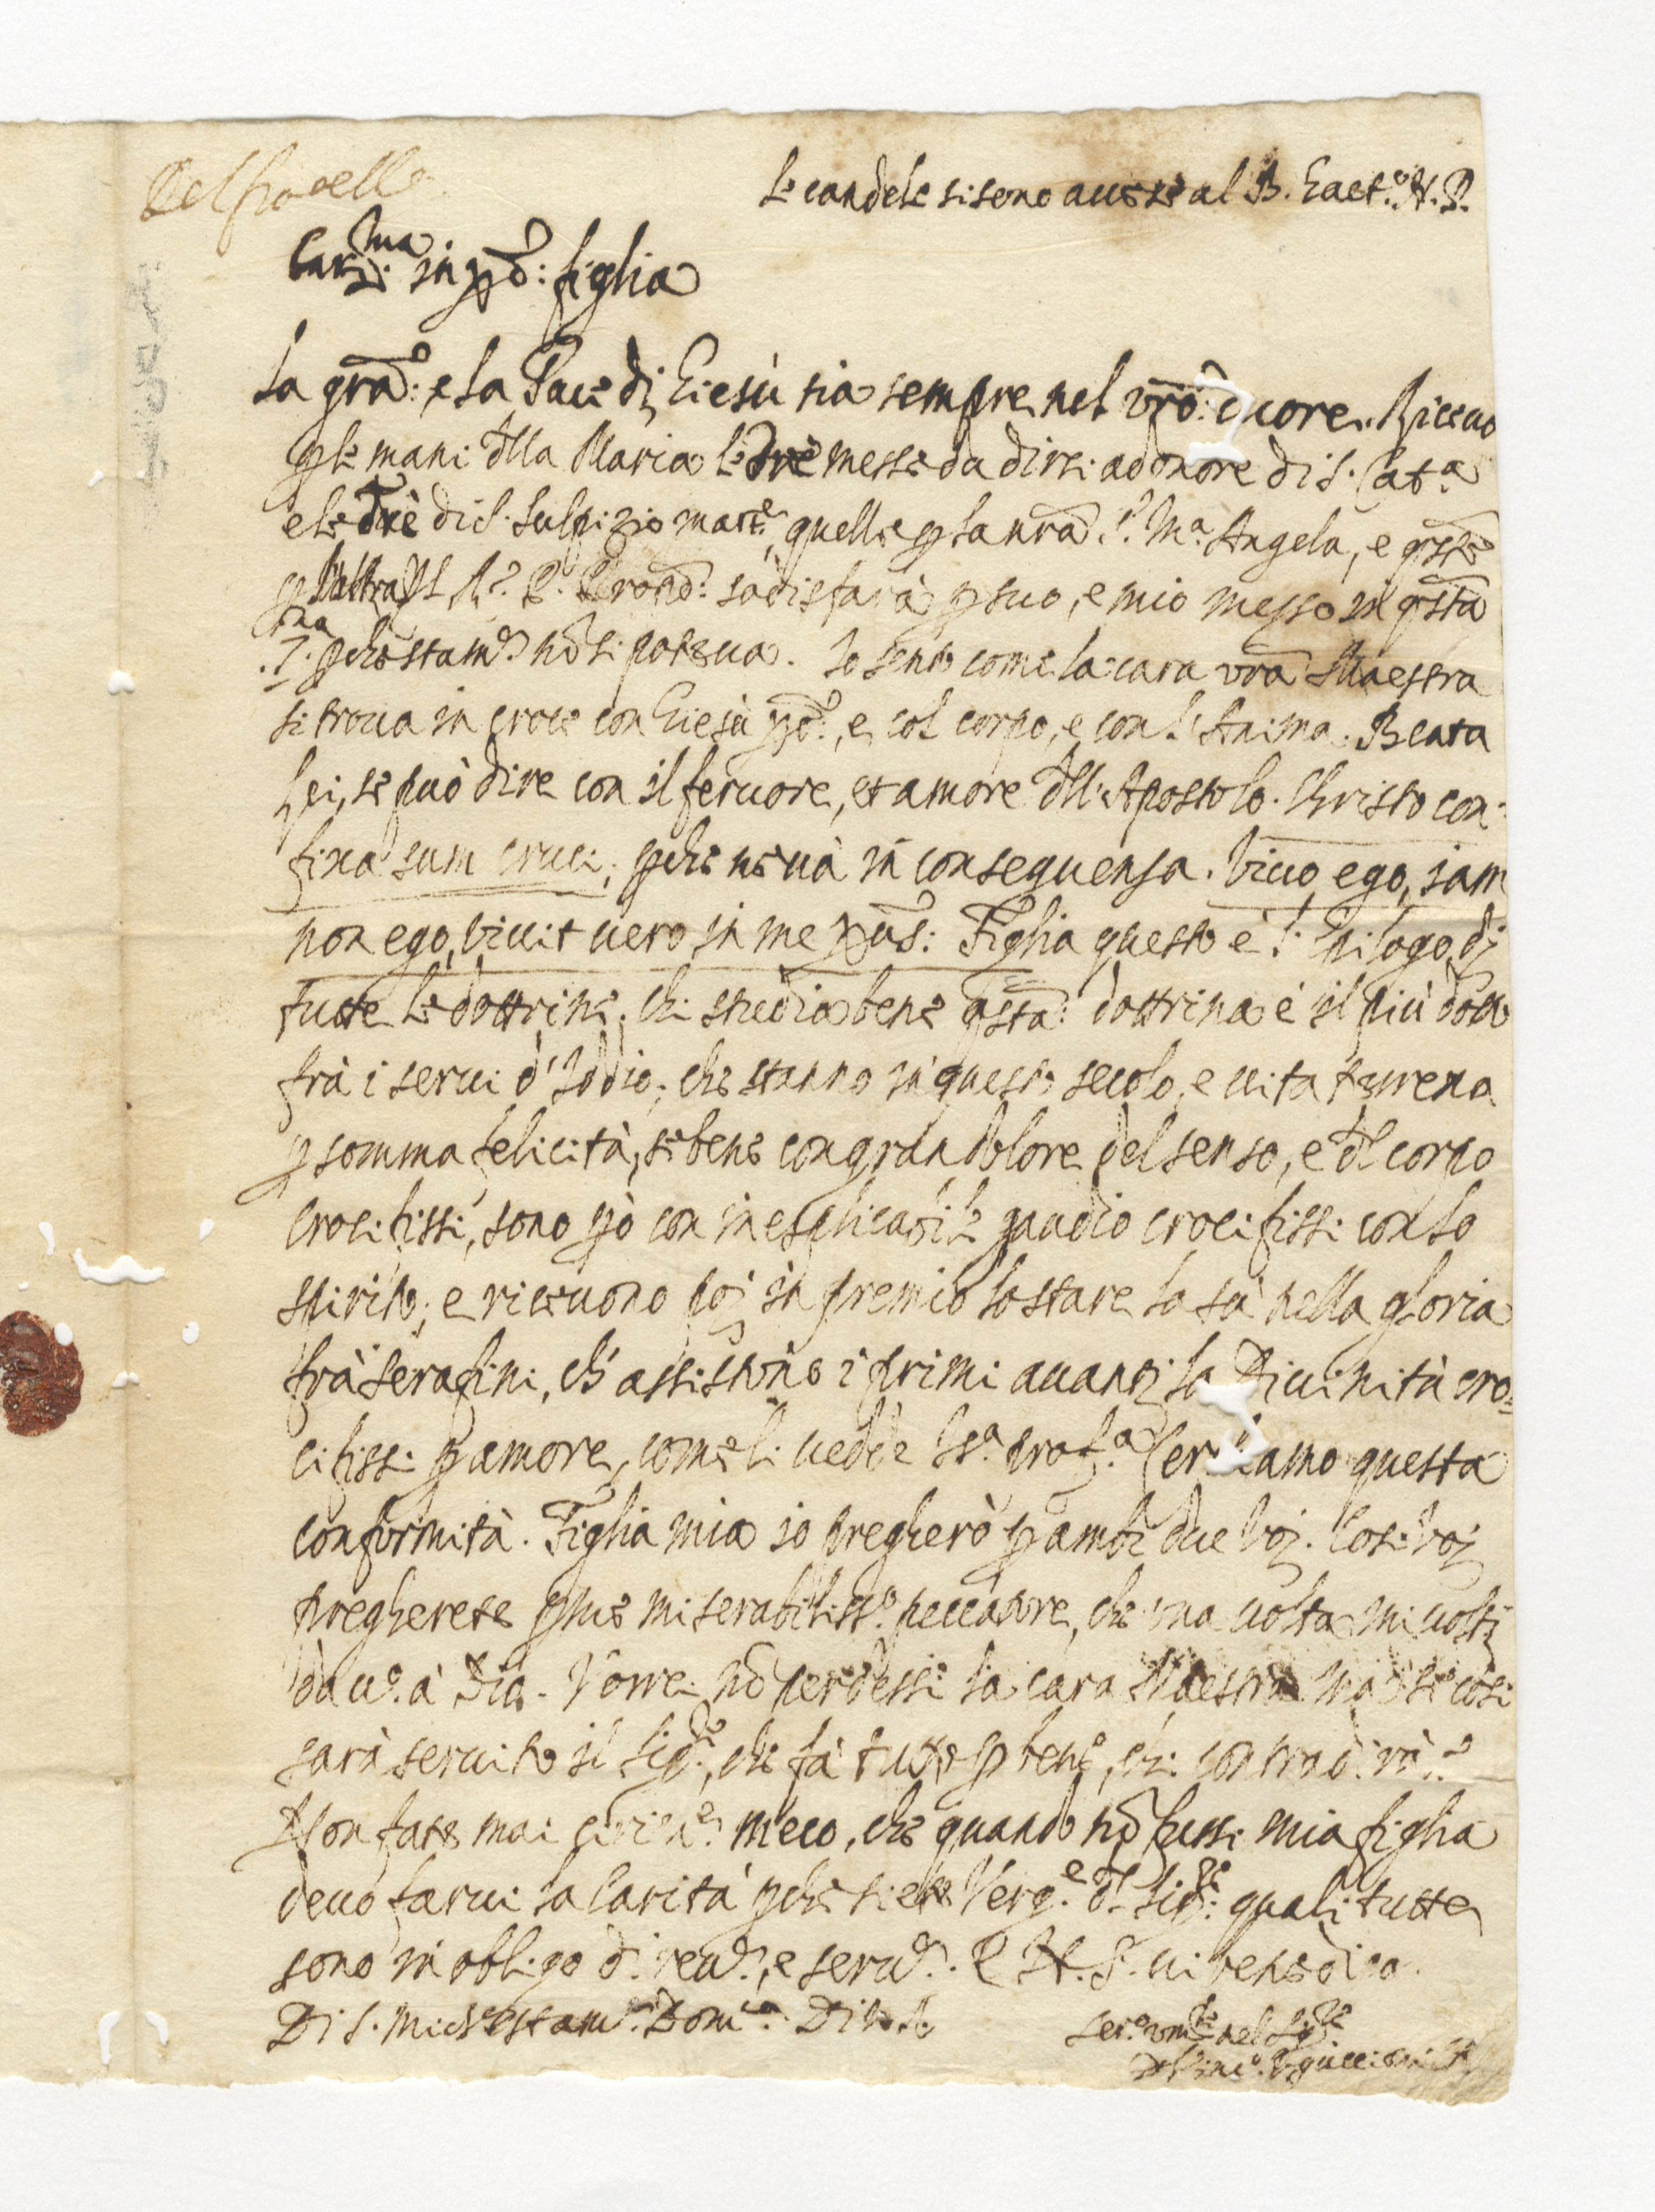 Le candele si sono accese al B. Gaet.º N. P.
Car.ma in xpõ: figlia
la grã: e la Pace di Giesù sia sempre nel vrõ: cuore. Riceuo
p le mani dlla Maria le tre messe da dirsi ad onore di S. Cat.a
e le Trè di S. Sulpizio mart.e, quelle p la nrã S.r M.a Angela, e q̃ste
p l'altra, Il R. P. sodisfarà p suo, e mio messo in q̃sta
p che stam.e nõ si poteua. Io sento come la cara vrã Maestra
si troua in croce con Giesù xpõ:, e col corpo, e con l'Anima. Beata
lei, se può dire con il feruore, et amore dll'Apostolo. Christo con-
fixa sum cruci, p che ne uà in conseguenza. Viuo ego, iam
non ego, viuit uero in me xpũs: Figlia questo è l'Epilogo di
tutte le dottrine. chi studia bene q̃sta: dottrina è il più dotto
frà i serui d'Iddio, che stanno in questo secolo, e uita terrena
p somma felicità, se bene con gran dolore del senso, e dl corpo
Crocifissi, sono p̃ò con inesplicabile gaudio crocifissi con lo
spirito, e riceuono poi in premio lo stare la sù nella gloria
frà Serafini, ch'assistono i primi auanti la Diuinità cro=
cifissi p amore, come li uedde questa
conformità. Figlia mia io pregherò p ambe due Voi. Così Voi
pregherete p me miserabiliss.º peccatore, che una uolta mi uolti
da u.º à Dio. Vorrei nõ perdessi la cara Maestra mà se così
sarà seruito il Sig.re, che fà tutto p bene, chi contradirà?
Non fate mai cirim.e meco, che quando nõ fussi mia figlia
deuo farui la Carità p che siete Verg.e dl Sig.re: quali tutte
sono in obligo di reu.e, e seru.e. E N. S. ui benedica.
Di S. Michele stam.a Dom.ca Di
Ser.e vm.le nel Sig.re